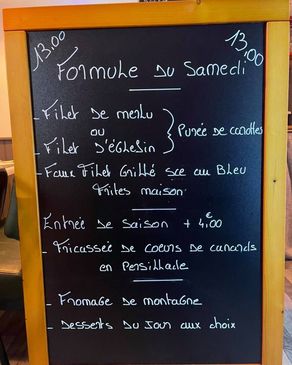 13,00 13,00
Formule Du Samedi
- Filet De merlu
ou
- Filet D'églefin
Purée de carottes
- Faux Filet Grillé sce au Bleu
Frites maison
Entrée de Saison + 4,00€
- Fricassée de coeurs de canards
en Persillade
- Fromage de montagne
- Desserts Du Jour aux choix